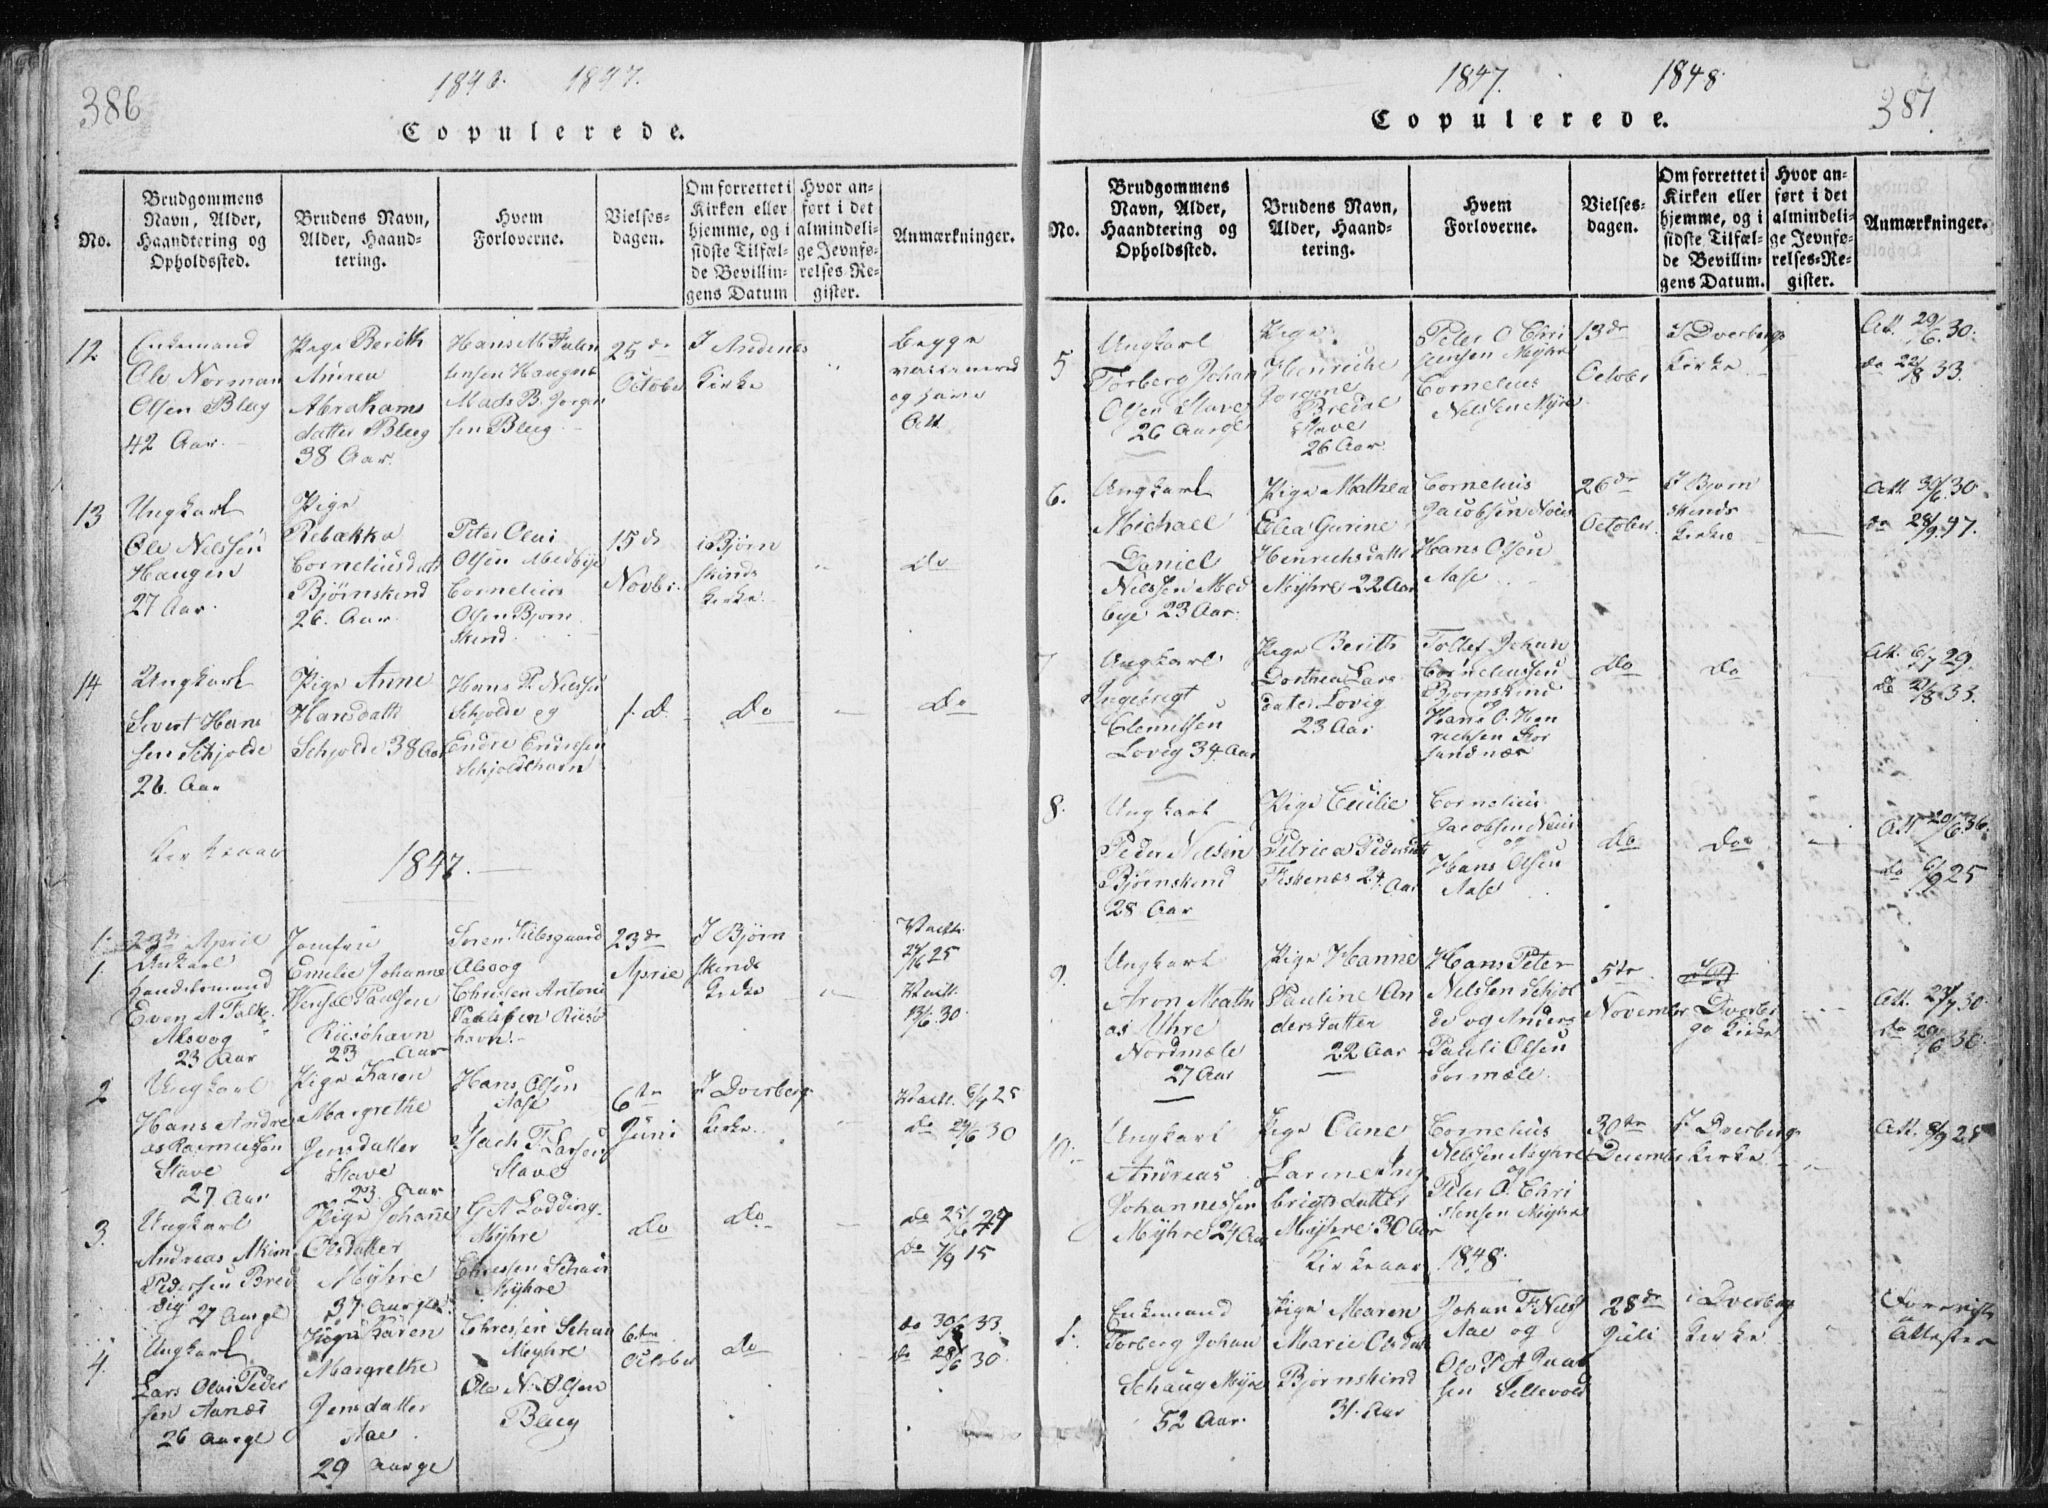 386
1846. 1847.
Copulerede.
No.
Brudgommens Navn, Alder, Haandtering og Opholdssted.
Brudens Navn, Alder, Haandtering.
Hvem Forloverne.
Vielsesdagen.
Om forrettet i Kirken eller hjemme, og i sidste Tilfælde Bevillingens Datum
Hvor anført i det almindelige Jevnførelses-Register.
Anmærkninger.
12
Enkemand
Ole Norman
Olsen Bleig
42 Aar.
Pige Berith
Andrea
Abrahams
datter Bleig
38 Aar.
Hans M Falen
Mads B. Jørgen
sen Bleig.
25de
October
I Andenes
Kirke
Begge
vaccinered
og have
Att
13
Ungkarl
Ole Nilssen
Haugen
27 Aar.
Pige
Rebækka
Corneliusdatt
Bjørnskind
26. Aar.
Peter Olai
Olsen Medbye
Cornelius
Olsen Bjørn
skind
15de
Novbr.
i Bjørn
skinds
Kirke.
do
14
Ungkarl
Sivert Han
sen Schjolde
26. Aar
Pige Anne
Hansdatt
Schjolde 38 Aar
Hans P. Nilssen
Schjolde og
Endre Endresen
Schjoldehavn
1. d.
do
do
Kirkeaar
1847.
1.
23de April
Unkarl
Handelsmand
Even A Falk
Alsvog
23 Aar
Jomfru
Emelie Johanne
Wensel Paulsen
Riisøhavn
23 Aar
Søren Kielsgaard
Alsvog
Christen Antoni
Paulsen Riisø
havn.
23de
April
I Bjørn
skinds
Kirke
25
30
2
Ungkarl
Hans Andre
as Rasmussen
Stave
27 Aar
Pige Karen
Margrethe
Jensdatter
Stave
23 Aar
Hans Olsen
Aase
Isach F. Larsen
Stave
6te
Juni
I Dverberg
Kirke
Vacc. 6/7 25
do 29/6 30
3.
Ungkarl
Andreas Akim
Pedersen Bred
vig 27 Aargl
Pige Johanne
Olsdatter
Myhre
37 Aargl.
G A Lodding
Myhre
Chressen Schau
Myhre
do
do
do 25/6 27
do 7/9 15
4.
Ungkarl
Lars Olai Peder
sen Aanæs
26 Aargl
Pige Karen
Margrethe
Jensdatter
Aae
29 Aargl
Chressen Schau
Myhre
Ole N. Olsen
Bleig
6te
October
do
do 30/6 33.
do 28/6 30.
1847. 1848.
387.
Copulerede.
No.
Brudgommens Navn, Alder, Haandtering og Opholdssted.
Brudens Navn, Alder, Haandtering.
Hvem Forloverne.
Vielsesdagen.
Om forrettet i Kirken eller hjemme, og i sidste Tilfælde Bevillingens Datum.
Hvor anført i det almindelige Jevnførelses-Register.
Anmærkninger.
5
Ungkarl
Torberg Johan
Olsen Stave
26 Aargl
Pige
Henriche
Jørgine
Bredal
Stave
26 Aar.
Peter O Chri
stensen Myhre
Cornelius
Nilssen Myre
13de
October
I Dverbergs
Kirke
Att. 29/6 30.
do 22/8 33.
6.
Ungkarl
Michael
Daniel
Nilssen Med
bye 23 Aar.
Pige Mathea
Elea Gurine
Henrichsdatte
Myhre 22 Aar
Cornelius
Jacobsen Nøis
Hans Olsen
Aase
26de
October.
I Bjørn
skinds
Kirke
Att. 30/6 30
do 28/9 47.
7
Ungkarl
Ingebrigt
Clemitsen
Lovig 34 Aar
Pige Berith
Dorthea Lars
datter Lovig
23 Aar
Tollef Johan
Corneliussen
Bjørnskind
og
Hans O. Hen
richsen For
sandnæs
do
do
Att. 6/7 29.
do 21/8 33.
8.
Ungkarl
Peder Nilsen
Bjørnskind
28 Aar
Pige Cecilie
Petrica Pedersdatt
Fiskenæs 24 Aar
Cornelius
Jacobsen Nøis
og
Hans Olsen
Aase
do
do
Att 20/6 36.
do 6/9 25
9.
Ungkarl
Aron Mathi
as Uhre
Nordmæle
27 Aar
Pige Hanne
Pauline An
dersdatter
22 Aar
Hans Peter
Nilssen Schjol
de og Anders
Pauli Olsen
Sørmæle.
5te
November
I
Dverber
gs Kirke
Att. 27/7 30
do 29/6 36.
10.
Ungkarl
Andreas
Johannessen
Myhre 24 Aar
Pige Oline
Larine Ing
brigtsdatter
Myhre 30 Aar
Cornelius
Nilssen Myhre
og
Peter O. Chri
stensen Myhre
30te
December
I Dverberg
Kirke
Att. 8/9 25
Kirkeaar 1848.
1.
Enkemand
Torberg Johan
Schaug Myre
52 Aar.
Pige Maren
Marie Olsdatt
Bjørnskind
31. Aar
Johan F. Nilss
Aae og
Ole P. A Paul
sen Sellevold
28de
Juli
i Dverberg
Kirke
Foreviste
Attester